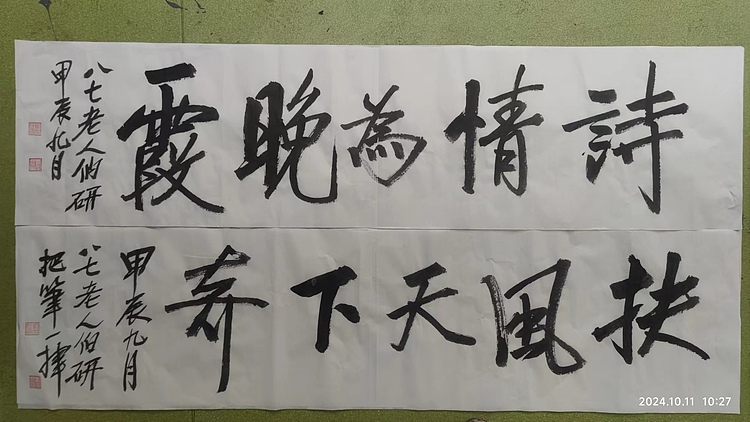 詩情為晚霞
八七老人伯研
甲辰九月
扶風天下
甲辰九月
八七老人伯研
把筆一揮
2024.10.11 10:27